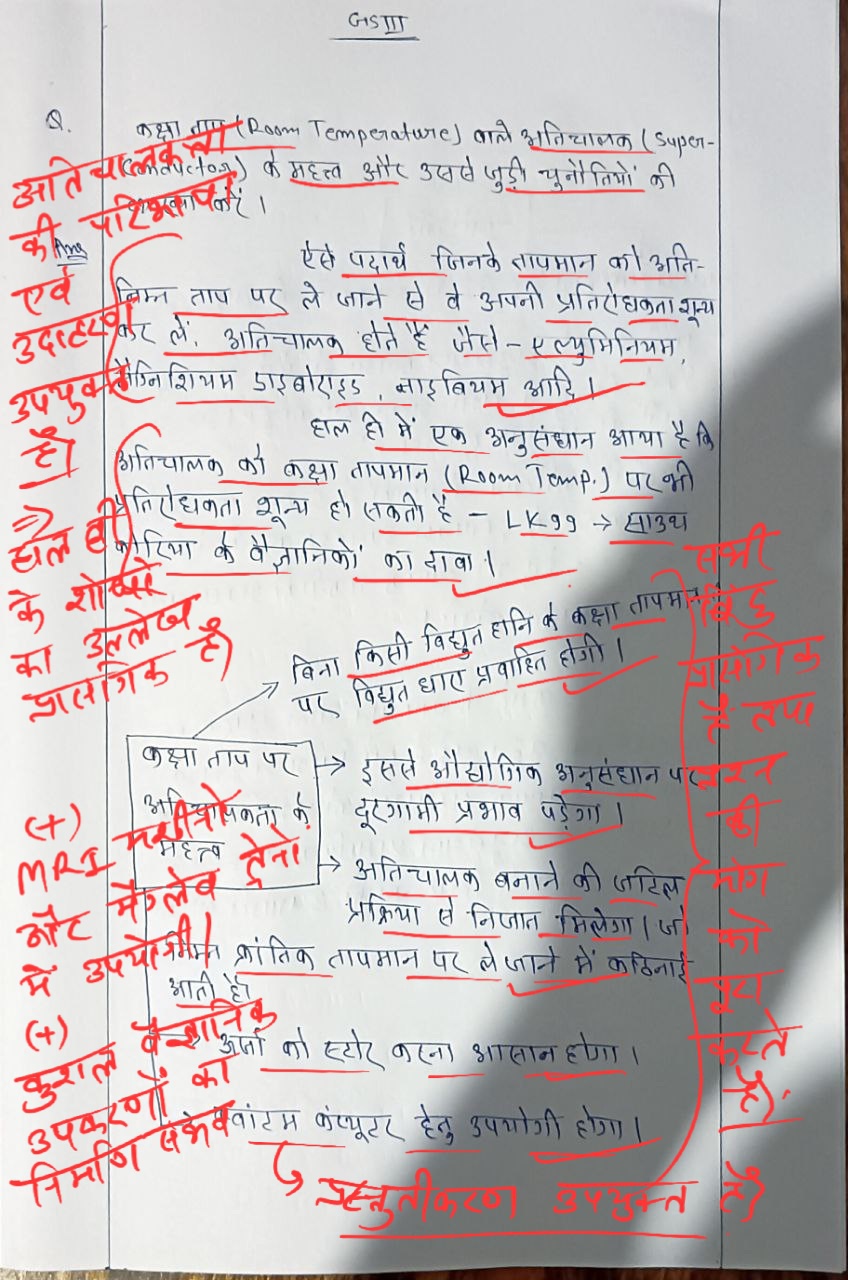 GSIII
Q. कक्षा ताप (Room Temperature) वाले अतिचालक (Super-
conductor) के महत्त्व और उससे जुड़ी चुनौतियों की
करें।
Ans
ऐसे पदार्थ जिनके तापमान को अति-
निम्न ताप पर ले जाने से वे अपनी प्रतिरोधकता शून्य
कर लें, अतिचालक होते हैं जैसे - एल्युमिनियम,
मैग्निशियम डाइबोराइड, नाइबियम आदि।
हाल ही में एक अनुसंधान आया है कि
अतिचालक को कक्षा तापमान (Room Temp.) पर भी
प्रतिरोधकता शून्य हो सकती है - LK99 → साउथ
कोरिया के वैज्ञानिकों का दावा।
बिना किसी विद्युत हानि के कक्षा तापमान
पर विद्युत धारा प्रवाहित होगी।
कक्षा ताप पर
अतिचालकता के
महत्त्व
→ इससे औद्योगिक अनुसंधान पर
दूरगामी प्रभाव पड़ेगा।
→ अतिचालक बनाने की जटिल
प्रक्रिया से निजात मिलेगा। जो
निम्न क्रांतिक तापमान पर ले जाने में कठिनाई
आती है।
ऊर्जा को स्टोर करना आसान होगा।
क्वांटम कंप्यूटर हेतु उपयोगी होगा।
अतिचालकता
की परिभाषा
एवं
उदाहरण
उपयुक्त
है।
⇒
हाल ही
के शोधों
का उल्लेख
प्रासंगिक है।
(+)
MRI मशीनों
और मैग्लेव ट्रेनों
में उपयोगी।
(+)
कुशल वैज्ञानिक
उपकरणों का
निर्माण संभव
सभी
बिंदु
प्रासंगिक
हैं तथा
प्रश्न
की
मांग
को
पूरा
करते
हैं।
प्रस्तुतीकरण उपयुक्त है।